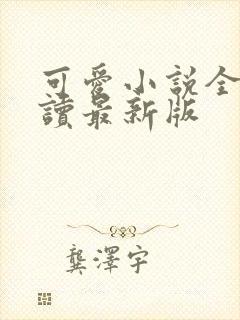 可愛小說全
讀最新版
龔澤宇